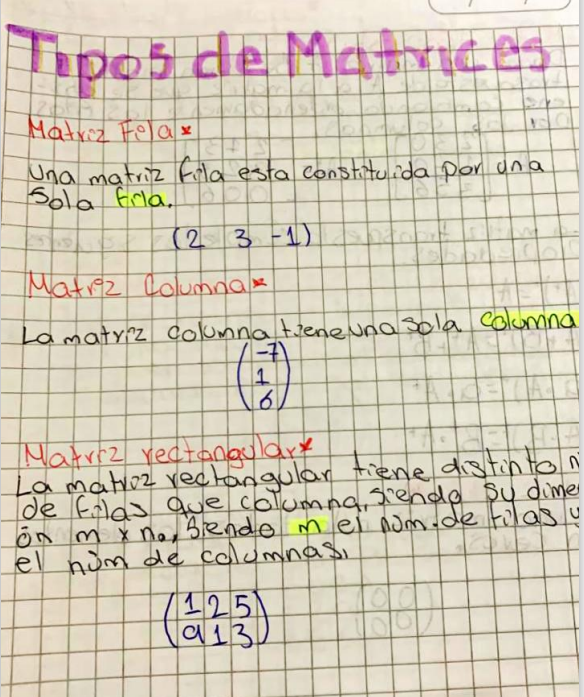 Tipos de Matrices
Matriz Fila*
Una matriz fila esta constituida por una
sola fila.
(2 3 -1)
Matriz Columna*
La matriz columna tiene una sola columna
(-7
1
6)
Matriz rectangular*
La matriz rectangular tiene distinto n
de filas que columna, siendo su dime
ón m x no, siendo m el núm. de filas y
el núm de columnas,
(1 2 5
9 1 3)